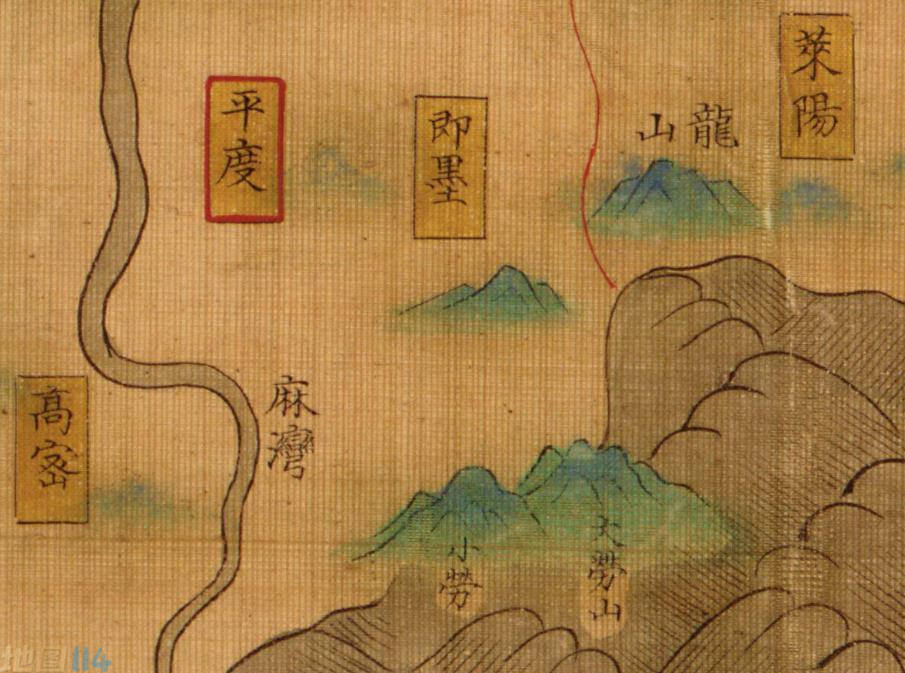 萊陽
龍山
即墨
平度
麻灣
高密
大勞山
小勞
地图114